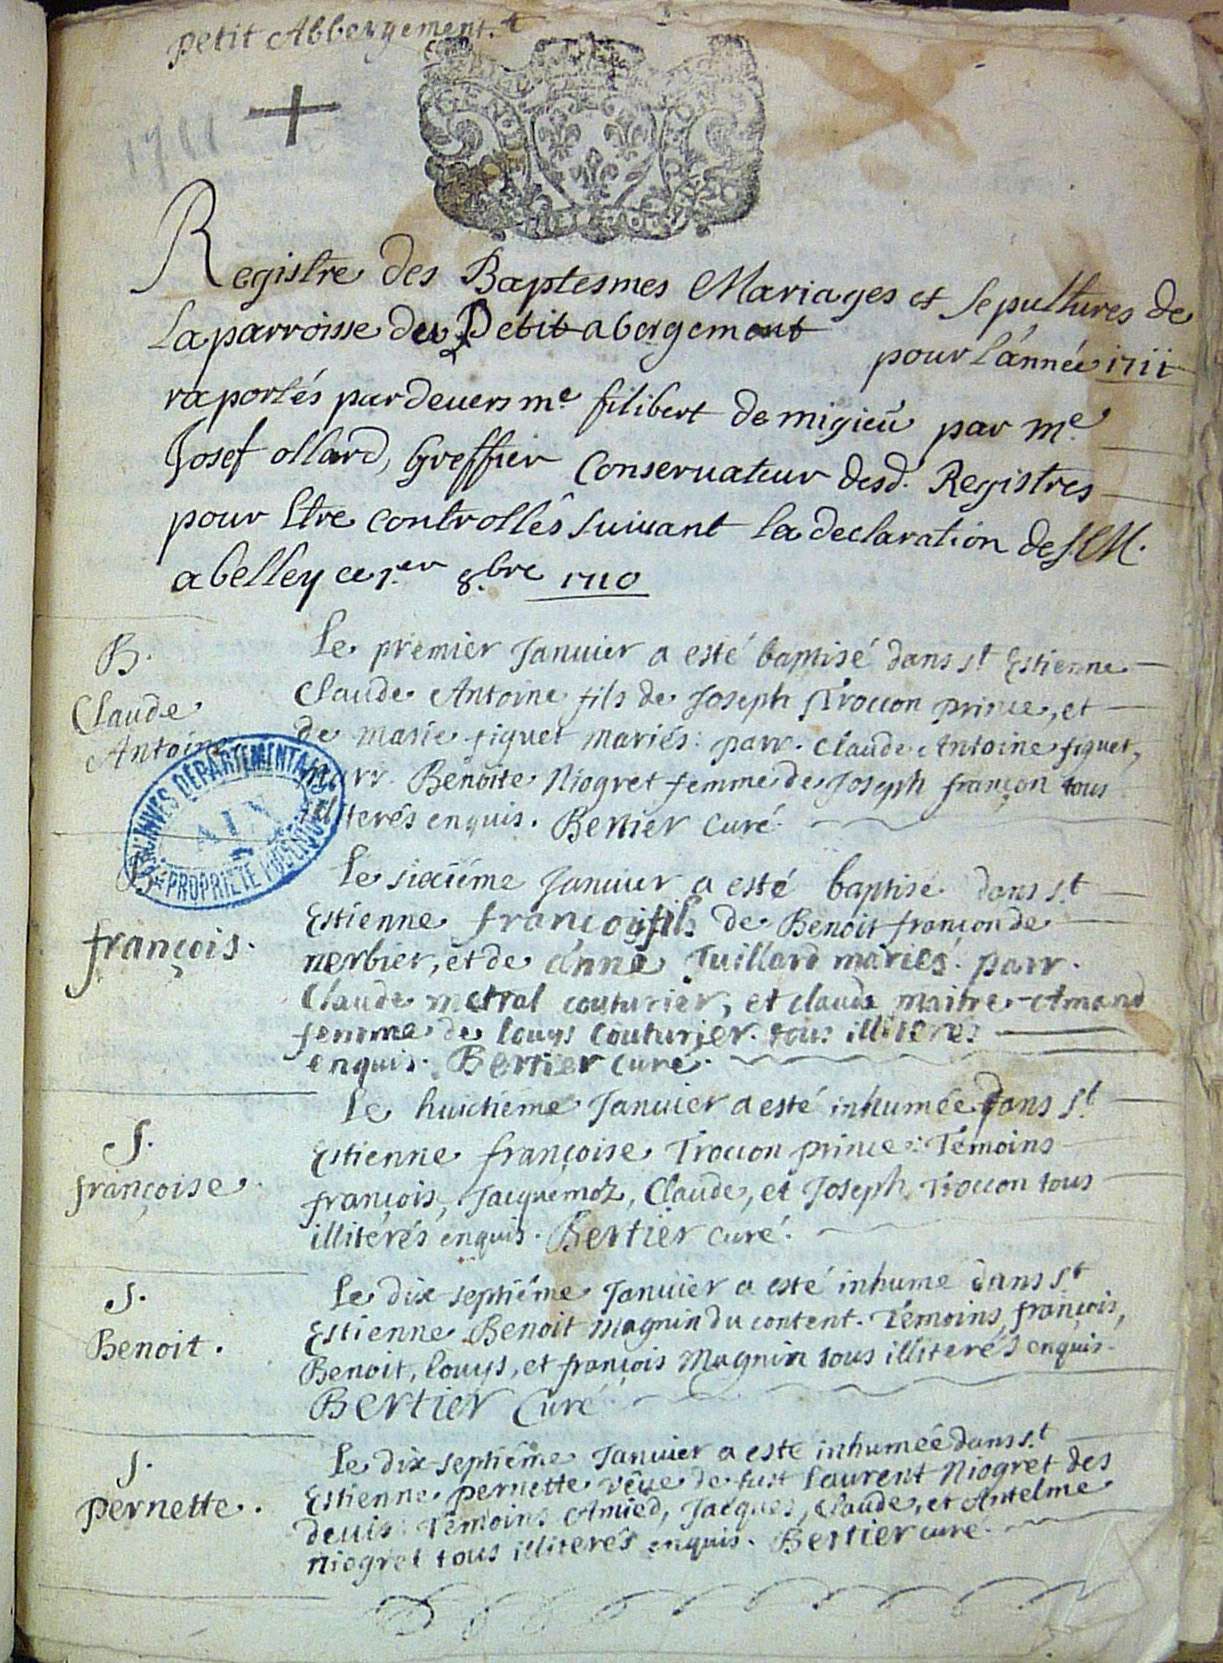 petit Abbergement.
1711
Registre des Baptesmes Mariages et Sepultures de
la parroisse du Petit abergement pour l'année 1711
raportés pardevers me. filibert de migieu par me.
Josef ollard, Greffier Conservateur desd. Registres
pour Etre controllés suivant la declaration de S.M.
a belley ce 1.er 8.bre 1710
B.
Claude
Antoine
Le premier Januier a esté baptisé dans st Estienne
Claude Antoine fils de Joseph Troccon prince, et
de marie figuet mariés: parr. Claude Antoine figuet,
marr. Benoite Niogret femme de Joseph françon tous
illiterés enquis. Bertier Curé.
ARCHIVES DEPARTEMENTALES
AIN
PROPRIETE PUBLIQUE
B.
françois.
Le sixiéme Januier a esté baptisé dans st.
Estienne françois fils de Benoit françon de
nerbier, et de anne Tuillard mariés. parr.
Claude metral couturier, et claude maitre-Amand
femme de louys couturier. tous illiterés
enquis. Bertier Curé.
S.
françoise.
Le huictiéme Januier a esté inhumée dans st.
Estienne françoise Troccon prince: Témoins
françois, Jacquemoz, Claude, et Joseph Troccon tous
illiterés enquis. Bertier curé.
S.
Benoit.
Le dix septiéme Januier a esté inhumé dans st
Estienne Benoit magnin du content. Témoins françois,
Benoit, louys, et françois Magnin tous illiterés enquis.
Bertier Curé
S.
pernette.
Le dix septiéme Januier a esté inhumée dans st.
Estienne pernette véue de fust laurent Niogret des
deuis: Témoins Amied, Jacques, Claude, et Antelme
niogret tous illiterés enquis. Bertier curé.